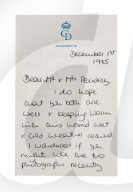 December 1st
1985
Dear Mr & Mrs Pendrey
I do hope
that you both are
well & keeping warm
with this awful wet
& cold weather around
I wondered if you
might like the
photographs recently